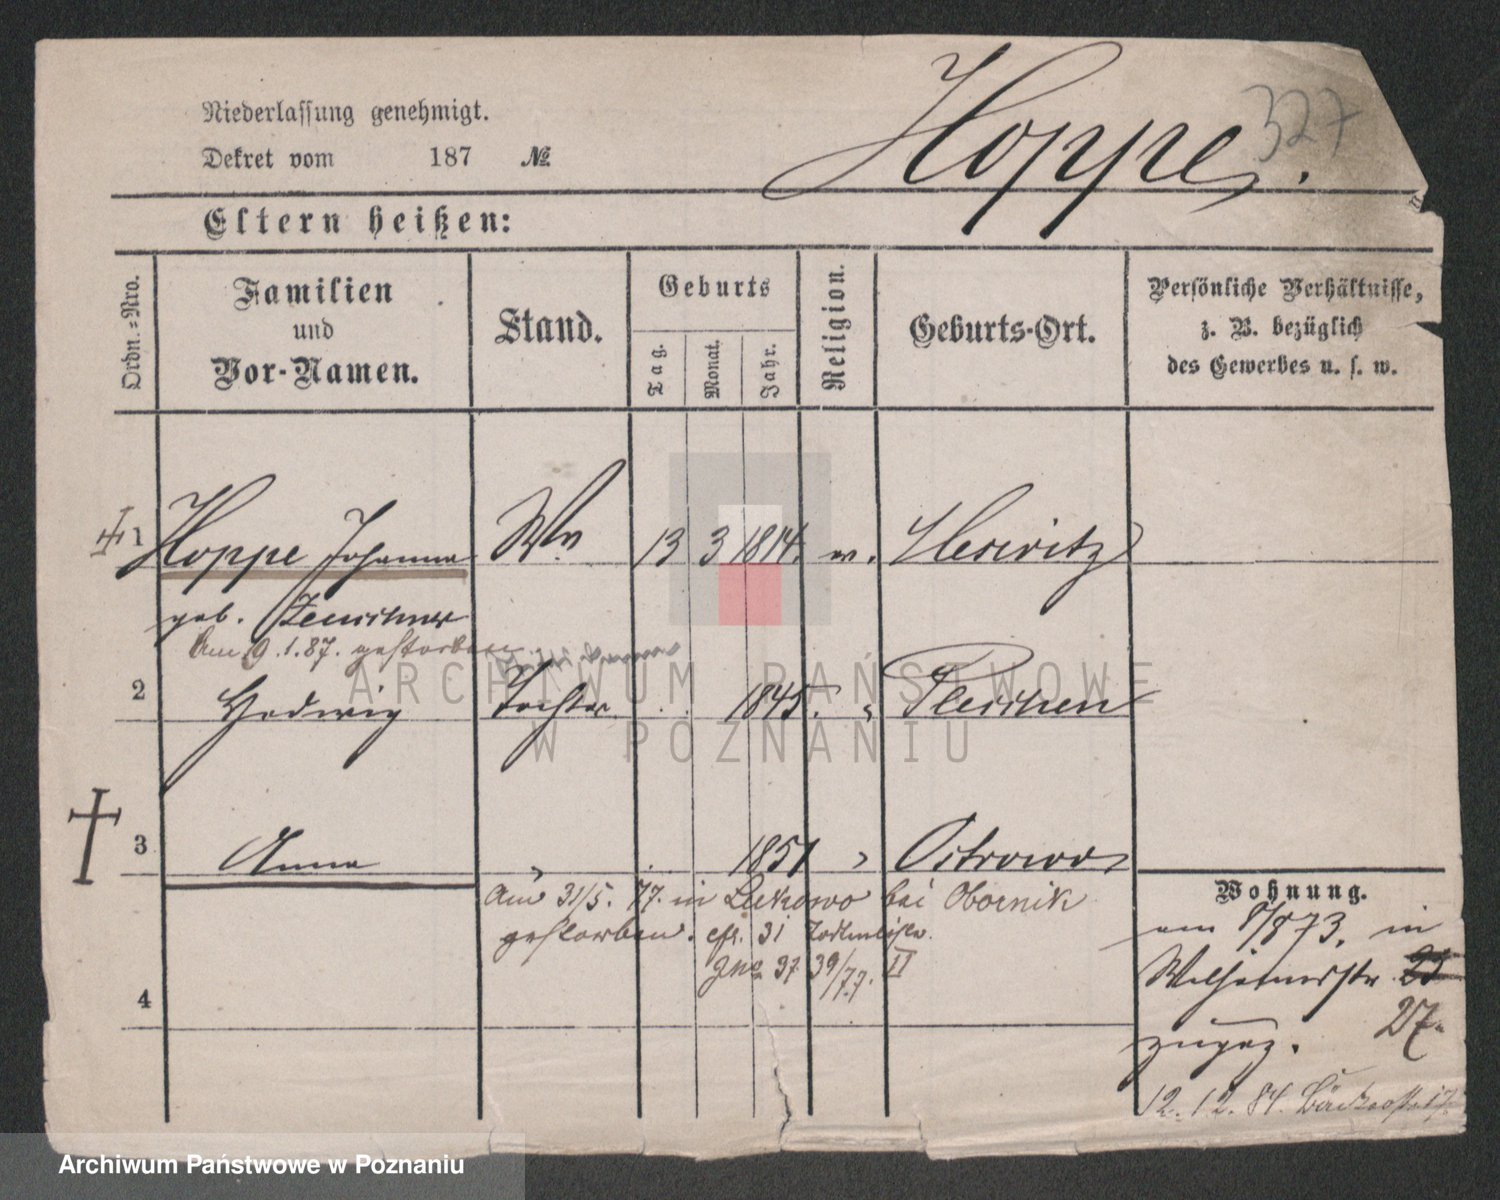 327
Niederlassung genehmigt.
Hoppe.
Dekret vom 187 No.
Eltern heißen:
Ordn.=Nro.
Familien und Vor-Namen.
Stand.
Geburts
Tag.
Monat.
Jahr.
Religion.
Geburts-Ort.
Persönliche Verhältnisse,
z. B. bezüglich
des Gewerbes u. s. w.
1 Hoppe Johanna Ww 13 3 1814.
geb.
Am 9.1.87. gestorben
2 Hedwig Tochter 1845. " Pleschen
3 Anna " 1851 " Ostrowo
Am 31/5. 77. in bei Obornik
gestorben. cfr. 31
39/77. II
4
Wohnung.
am 8/8 73. in
Wilhelmsstr.
27.
zugez.
12.12.84. Bäckerstr. 17.
ARCHIWUM PAŃSTWOWE
W POZNANIU
Archiwum Państwowe w Poznaniu